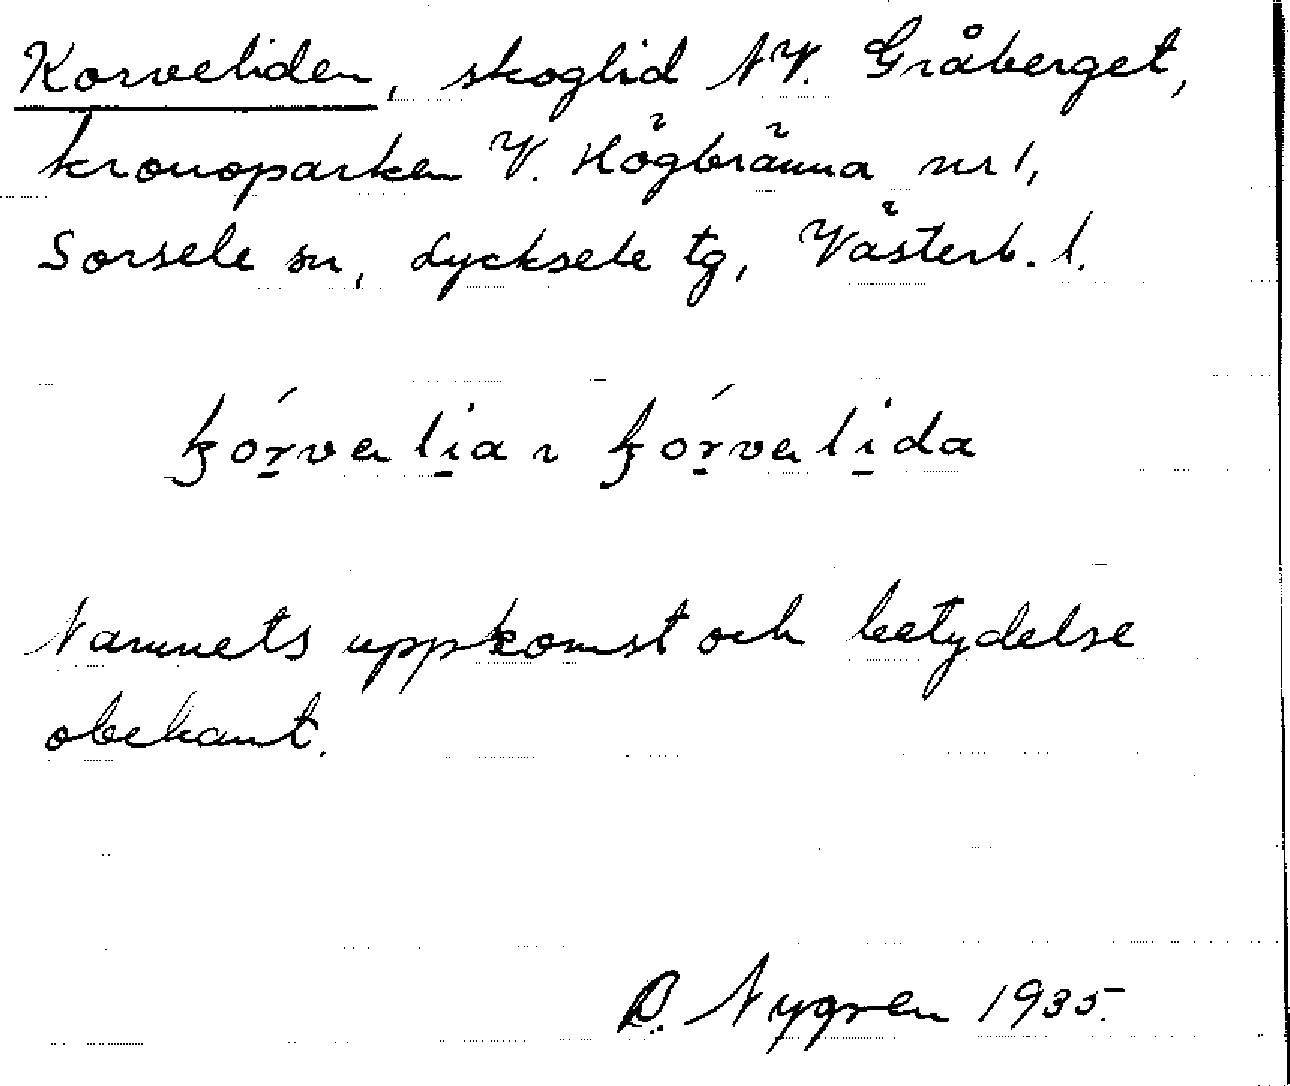 Korveliden, skoglid NV. Gråberget,
kronoparken V. Högbränna nr 1,
Sorsele sn, Lycksele tg, Västerb. l.
kórvalia ~ kórvalida
Namnets uppkomst och betydelse
obekant.
Nygren 1935.